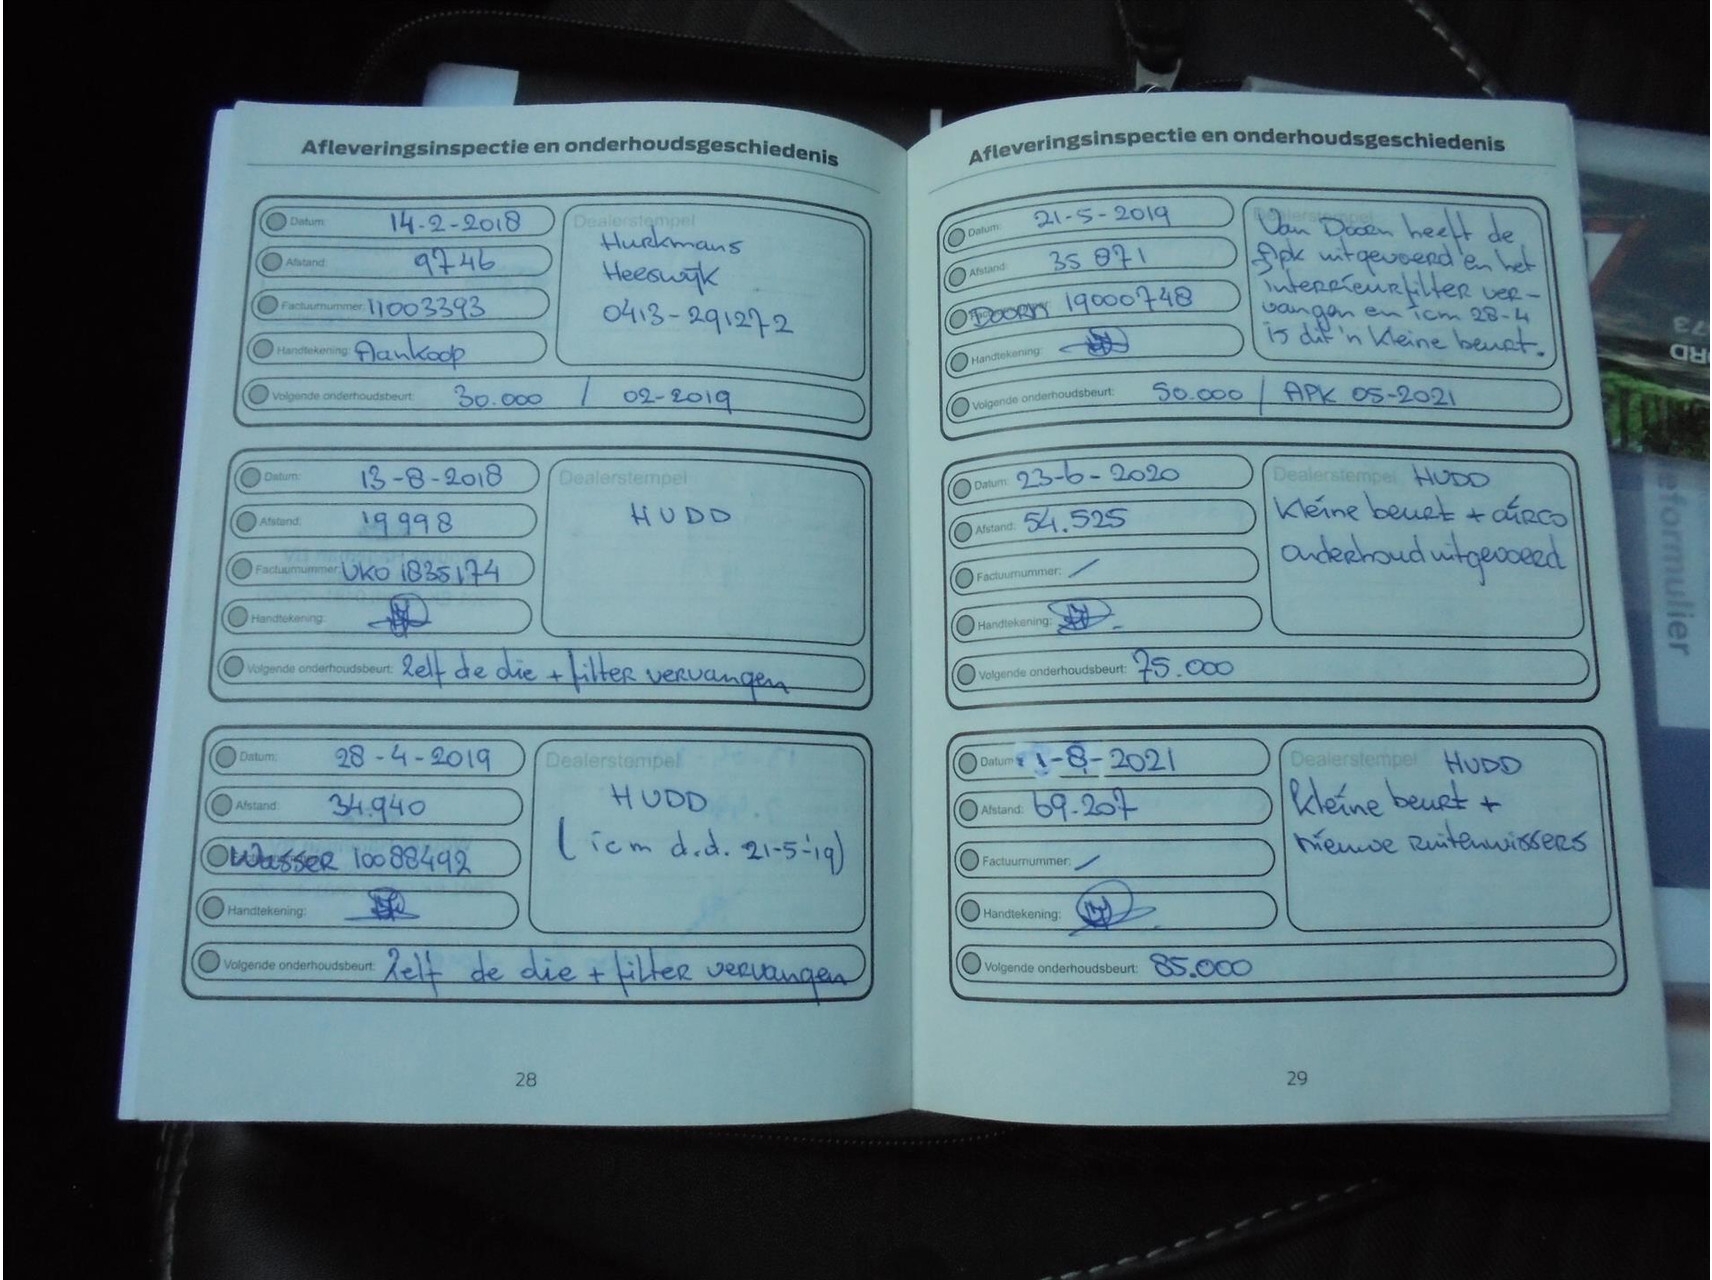 Afleveringsinspectie en onderhoudsgeschiedenis
Datum: 14-2-2018
Afstand: 9746
Factuurnummer: 11003393
Handtekening: Aankoop
Dealerstempel
Hurkmans
Heeswijk
0413-291272
Volgende onderhoudsbeurt: 30.000 / 02-2019
Datum: 13-8-2018
Afstand: 19998
Factuurnummer: VKO 1835174
Handtekening:
Dealerstempel
HUDD
Volgende onderhoudsbeurt: Zelf de olie + filter vervangen
Datum: 28-4-2019
Afstand: 34.940
Wasser 10088492
Handtekening:
Dealerstempel
HUDD
(icm d.d. 21-5-'19)
Volgende onderhoudsbeurt: Zelf de olie + filter vervangen
28
Afleveringsinspectie en onderhoudsgeschiedenis
Datum: 21-5-2019
Afstand: 35 871
DOORN 19000748
Handtekening:
Dealerstempel
Van Doorn heeft de
Apk uitgevoerd en het
interieurfilter ver-
vangen en icm 28-4
is dit 'n kleine beurt.
Volgende onderhoudsbeurt: 50.000 / APK 05-2021
Datum: 23-6-2020
Afstand: 54.525
Factuurnummer: /
Handtekening:
Dealerstempel HUDD
Kleine beurt + airco
onderhoud uitgevoerd
Volgende onderhoudsbeurt: 75.000
Datum: 1-8-2021
Afstand: 69.207
Factuurnummer: /
Handtekening:
Dealerstempel HUDD
Kleine beurt +
nieuwe ruitenwissers
Volgende onderhoudsbeurt: 85.000
29
eformulier